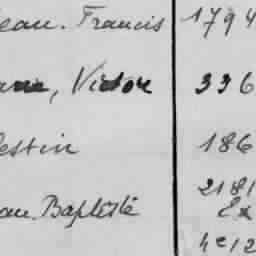 ean. Francis 1794
ane, Victor 336
lestin 186
2181
ean Baptiste Ex
4e 12